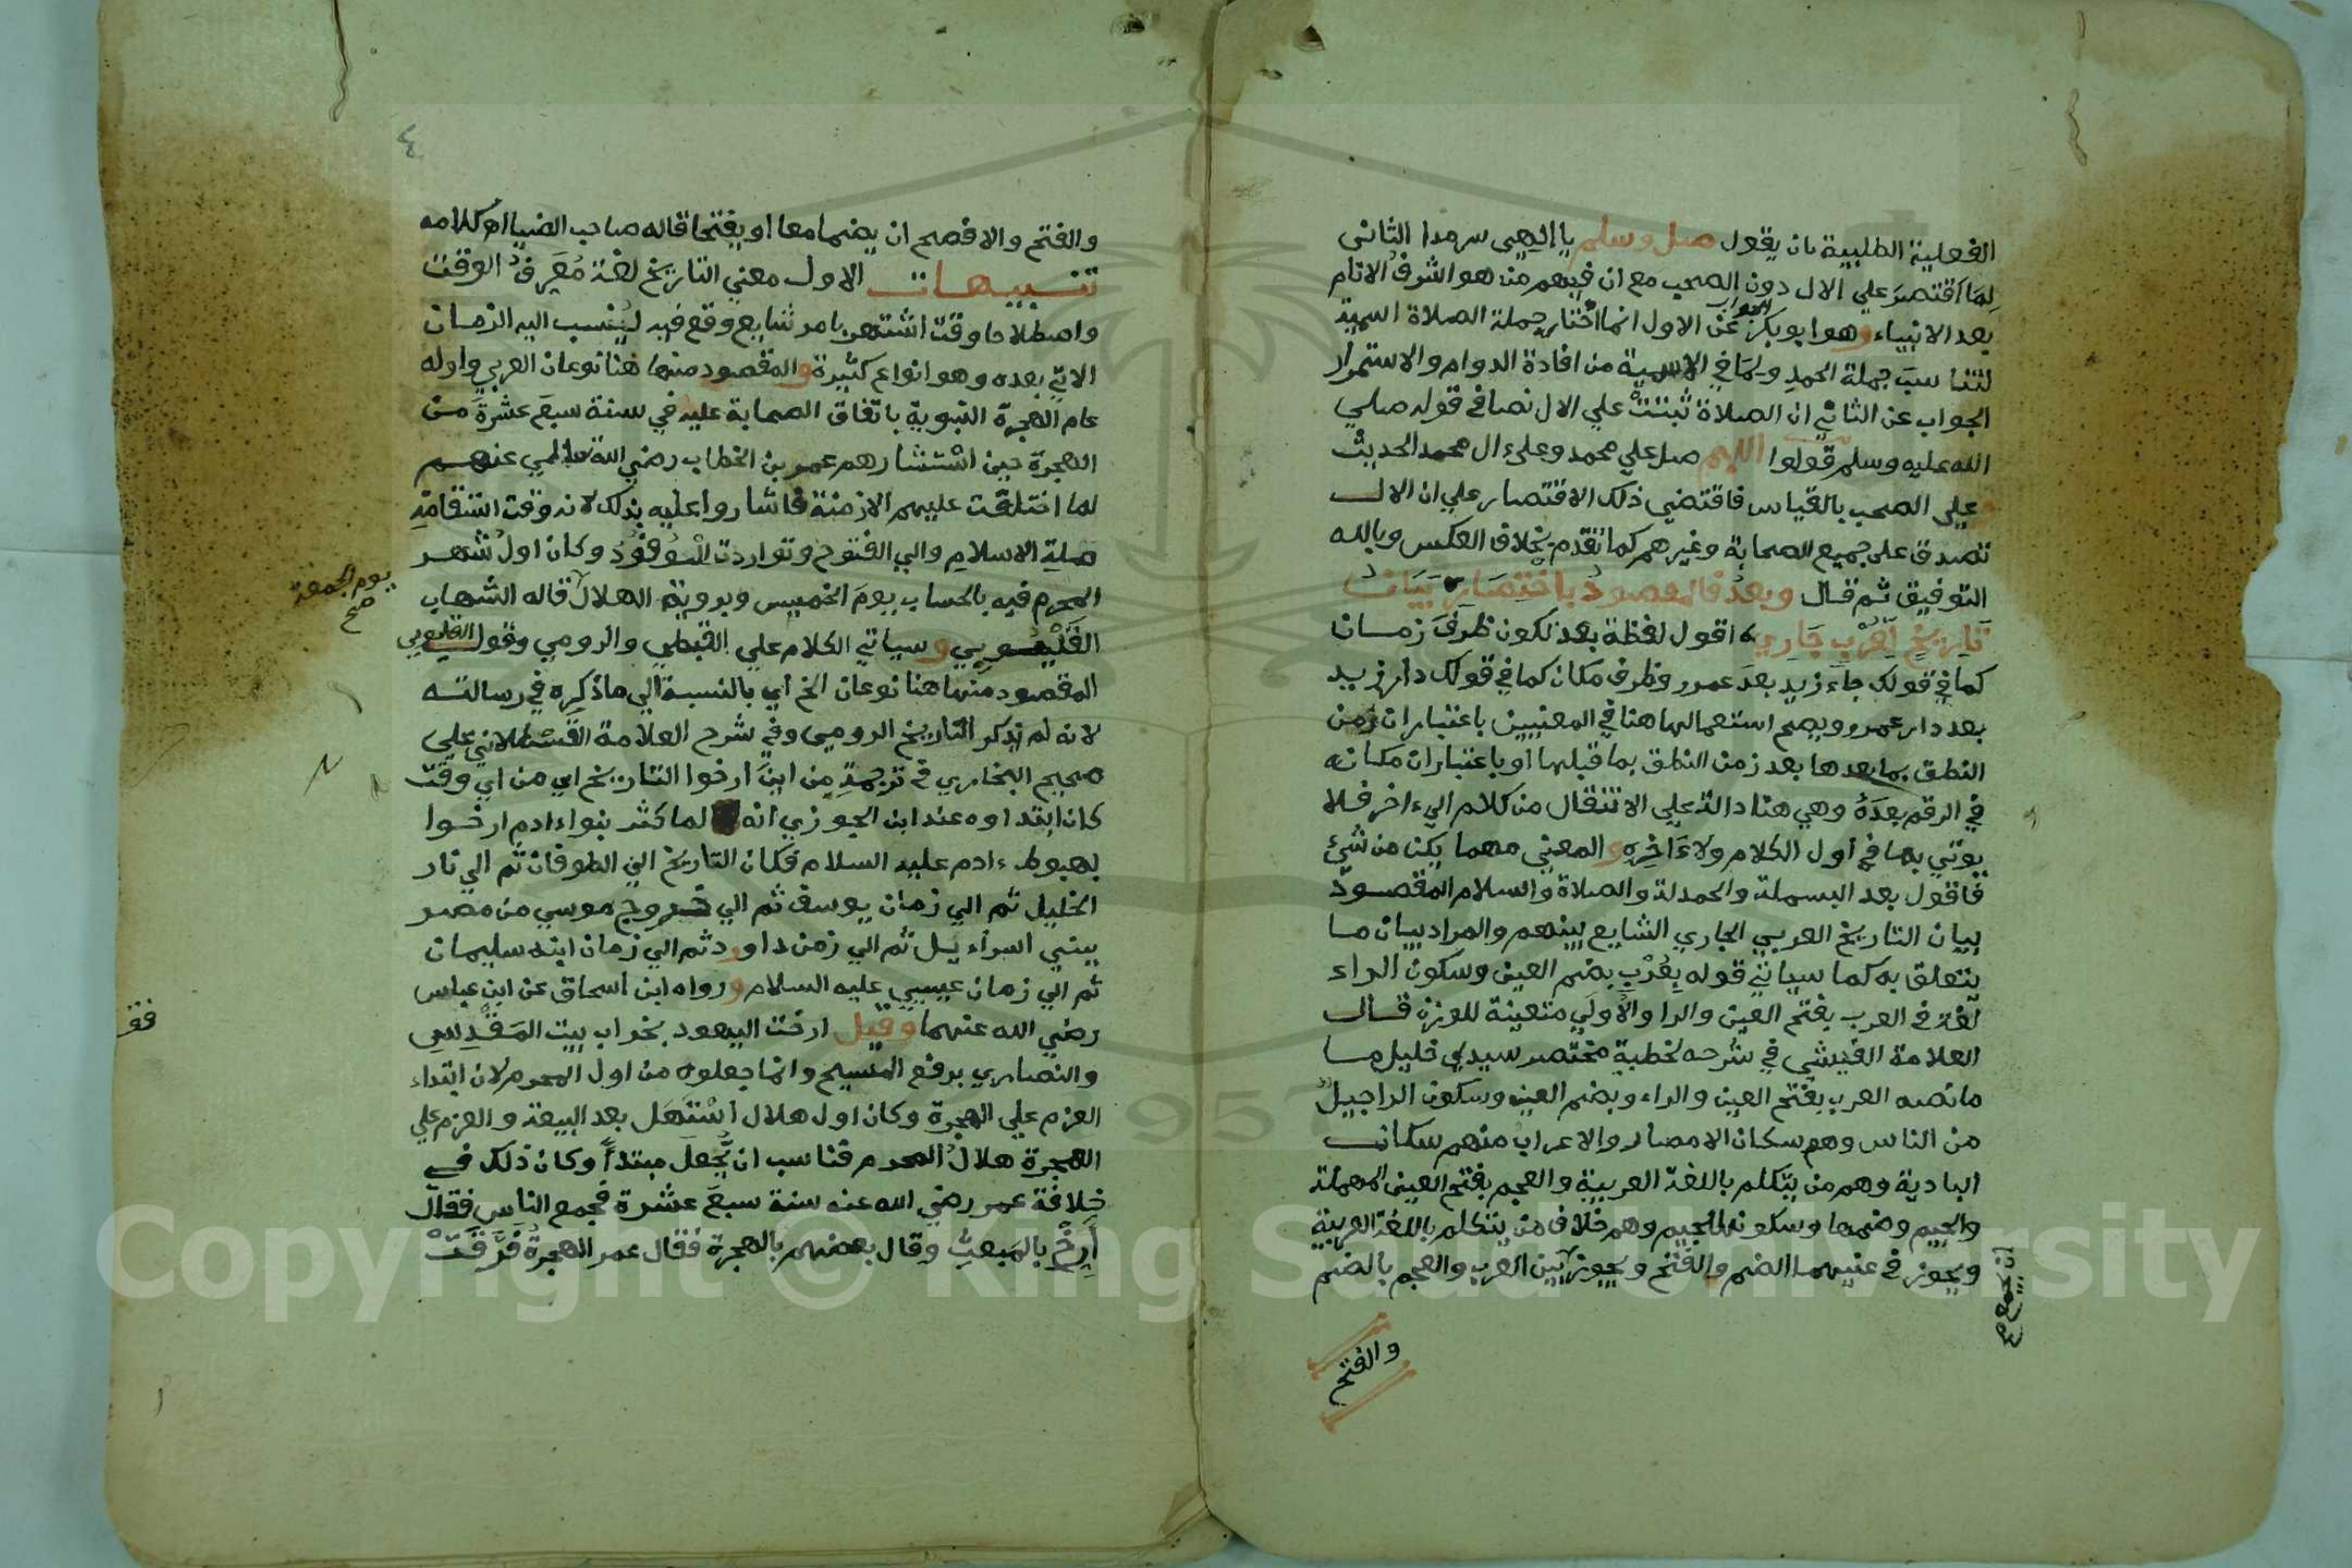 الفعلية الطلبية بان يقول صل وسلم يا الهي سرمدا الثاني
لم اقتصر علي الال دون الصحب مع ان فيهم من هو اشرف الانام
بعد الانبياء وهو ابو بكر الجواب عن الاول انما اختار جملة الصلاة اسمية
لتناسب جملة الحمد ولما في الاسمية من افادة الدوام والاستمرار
الجواب عن الثاني ان الصلاة ثبتت علي الال نصا في قوله صلي
الله عليه وسلم قولوا اللهم صل علي محمد وعلي ءال محمد الحديث
علي الصحب بالقياس فاقتضي ذلك الاقتصار علي ان الال
تصدق علي جميع الصحابة وغيرهم كما تقدم بخلاف العكس وبالله
التوفيق ثم قال وبعد فالمقصود باختصار بيان
تاريخ لعرب جاري اقول لفظة بعد تكون ظرف زمان
كما في قولك جاء زيد بعد عمرو وظرف مكان كما في قولك دار زيد
بعد دار عمرو ويصح استعمالها هنا في المعنيين باعتبار ان زمن
النطق بما بعدها بعد زمن النطق بما قبلها او باعتبار ان مكانه
في الرقم بعده وهي هنا دالة علي الانتقال من كلام الي ءاخر فلا
يوتي بها في اول الكلام ولا ءاخره والمعني مهما يكن من شئ
فاقول بعد البسملة والحمدلة والصلاة والسلام المقصود
بيان التاريخ العربي الجاري الشايع بينهم والمراد بيان ما
يتعلق به كما سياتي قوله بعرب بضم العين وسكون الراء
لغة في العرب بفتح العين والرا والاولي متعينة للوزن قال
العلامة الفيشي في شرحه لخطبة مختصر سيدي خليل ما
ما نصه العرب بفتح العين والراء وبضم العين وسكون الرا جيل
من الناس وهم سكان الامصار والاعراب منهم سكان
البادية وهم من يتكلم باللغة العربية والعجم بفتح العين المهملة
والجيم وضمها وسكون الجيم وهم خلاف من يتكلم باللغة العربية
ويجوز في عينيهما الضم والفتح ويجوز بين العرب والعجم بالضم
ان يجمع
والفتح
٤
والفتح والافصح ان يضما معا او يفتحا قاله صاحب الضيا اه كلامه
تنبيهات الاول معني التاريخ لغة معرف الوقت
واصطلاحا وقت اشتهر بامر شايع وقع فيه لينسب اليه الزمان
الاتي بعده وهو انواع كثيرة والمقصود منها هنا نوعان العربي واوله
عام الهجرة النبوية باتفاق الصحابة عليه في سنة سبع عشرة من
الهجرة حين استشارهم عمر بن الخطاب رضي الله تعالي عنهم
لما اختلفت عليهم الازمنة فاشاروا عليه بذلك لانه وقت استقامة
ملة الاسلام والي الفتوح وتواردت الوفود وكان اول شهر
المحرم فيه بالحساب يوم الخميس وبروية الهلال قاله الشهاب
يوم الجمعة صح
القليوبي وسياتي الكلام علي القبطي والرومي وقول القليوبي
المقصود منها هنا نوعان الخ اي بالنسبة الي ما ذكره في رسالته
لانه لم يذكر التاريخ الرومي وفي شرح العلامة القسطلاني علي
صحيح البخاري في ترجمة من اين ارخوا التاريخ اي من اي وقت
كان ابتداوه عند ابن الجوزي انه لما كثر بنواءادم ارخوا
بهبوط ءادم عليه السلام فكان التاريخ الي الطوفان ثم الي نار
الخليل ثم الي زمان يوسف ثم الي خروج موسي من مصر
ببني اسراءيل ثم الي زمن داوود ثم الي زمان ابنه سليمان
ثم الي زمان عيسي عليه السلام ورواه ابن اسحاق عن ابن عباس
رضي الله عنهما وقيل ارخت اليهود بخراب بيت المقدس
والنصاري برفع المسيح وانما جعلوه من اول المحرم لان ابتداء
العزم علي الهجرة وكان اول هلال استهل بعد البيعة والعزم علي
الهجرة هلال المحرم فناسب ان يجعل مبتدأ وكان ذلك في
خلافة عمر رضي الله عنه سنة سبع عشرة فجمع الناس فقال
أرخ بالمبعث وقال بعضهم بالهجرة فقال عمر الهجرة فرقت
Copyright © King Saud University
957